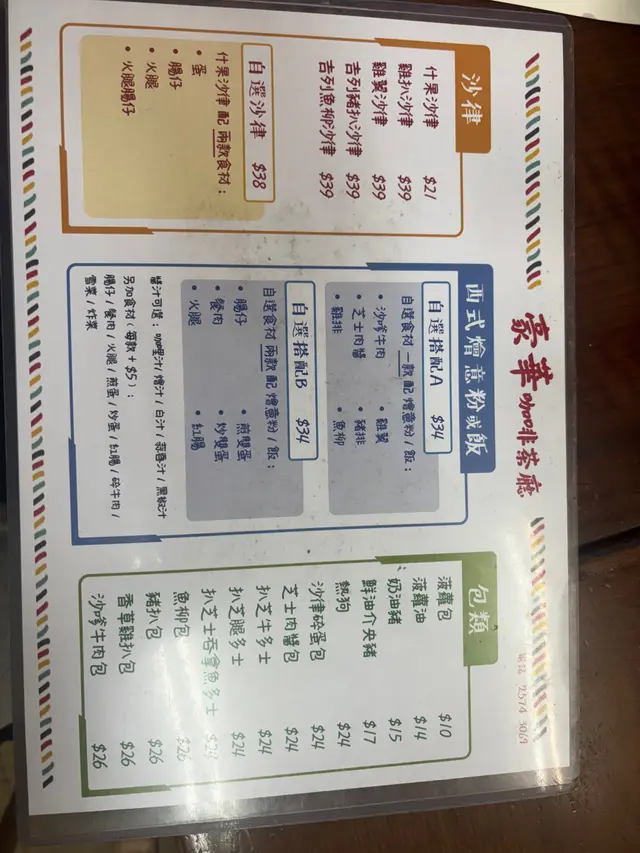 豪華咖啡茶廳
電話 2574 3069
沙律
什果沙律 $21
雞扒沙律 $39
雞翼沙律 $39
吉列豬扒沙律 $39
吉列魚柳沙律 $39
自選沙律 $38
什果沙律 配 兩款食材：
• 蛋
• 腸仔
• 火腿
• 火腿腸仔
西式燴意粉或飯
自選搭配A $34
自選食材 一款 配 燴意粉/飯：
• 沙嗲牛肉 • 雞翼
• 芝士肉醬 • 豬排
• 雞排 • 魚柳
自選搭配B $34
自選食材 兩款 配 燴意粉/飯：
• 腸仔 • 煎雙蛋
• 餐肉 • 炒雙蛋
• 火腿 • 紅腸
醬汁可選：咖喱汁/燴汁/白汁/蒜蓉汁/黑椒汁
另加食材(每款+$5)：
腸仔/餐肉/火腿/煎蛋/炒蛋/紅腸/碎牛肉/
雪菜/炸菜
包類
菠蘿包 $10
菠蘿油 $14
奶油豬 $15
鮮油介央豬 $17
熱狗 $24
沙律碎蛋包 $24
芝士肉醬包 $24
扒芝牛多士 $24
扒芝腿多士 $24
扒芝士吞拿魚多士 $24
魚柳包 $26
豬扒包 $26
香草雞扒包 $26
沙嗲牛肉包 $26